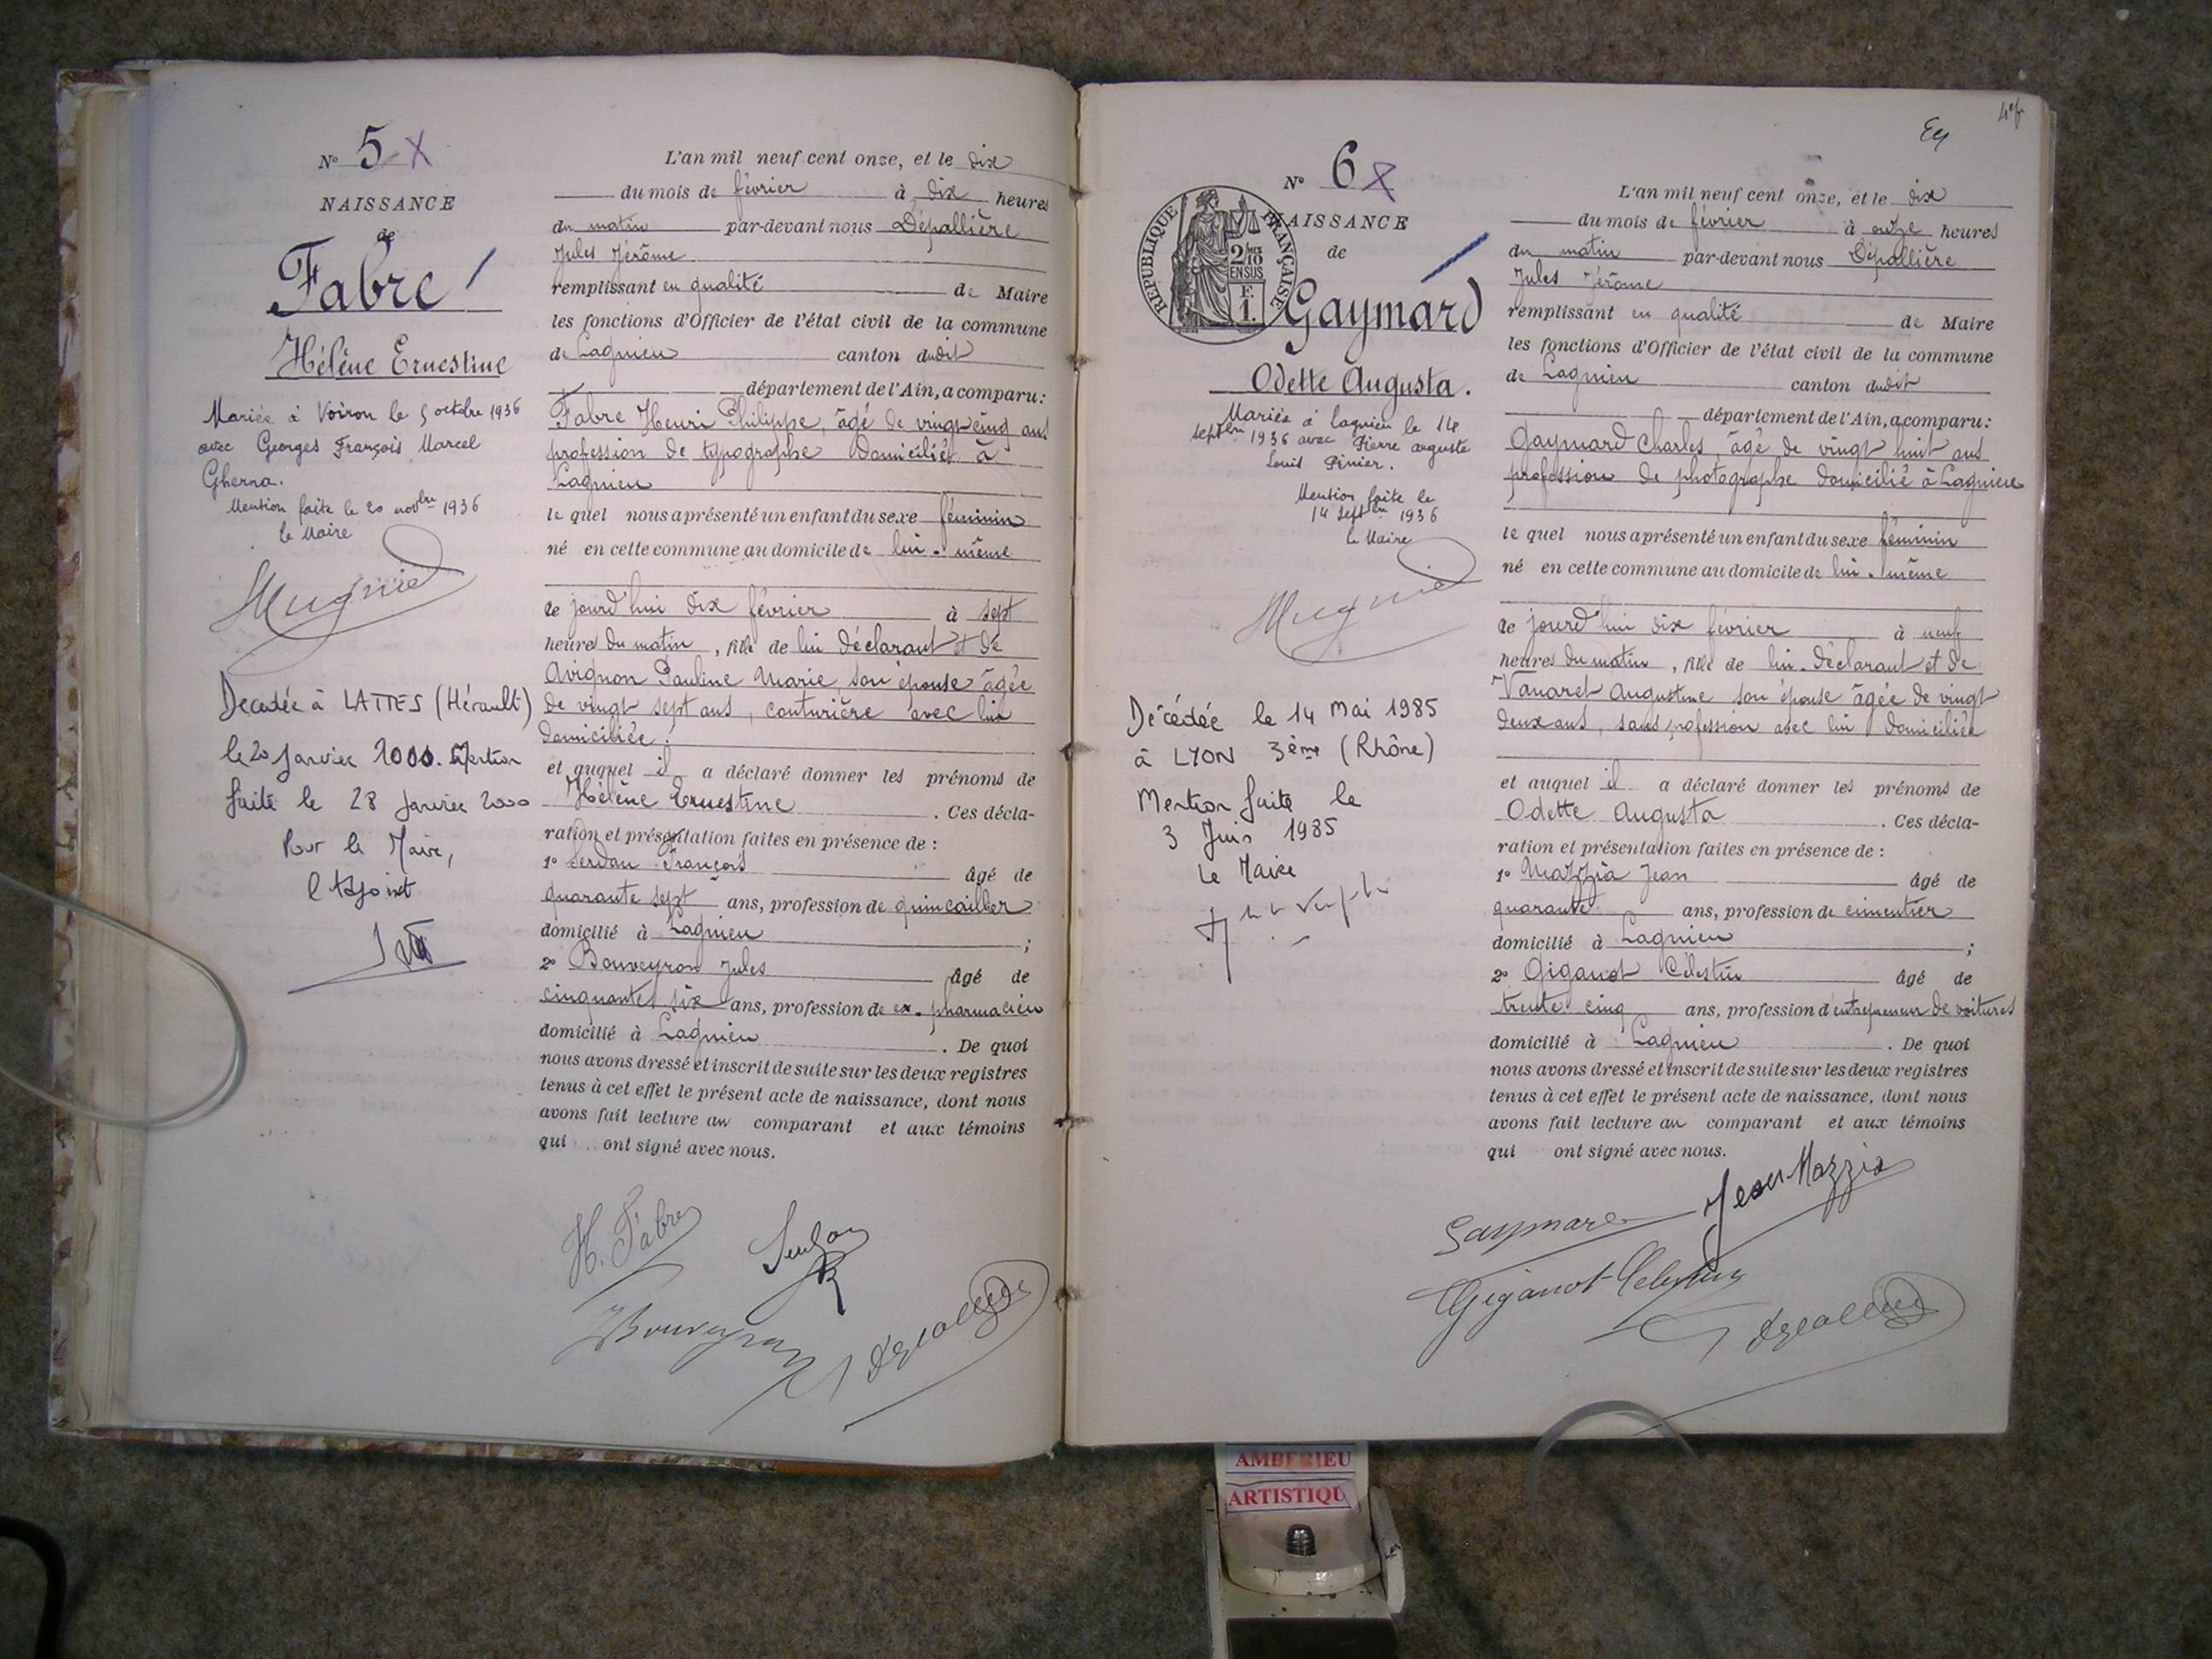 N° 5 X
NAISSANCE
de
Fabre
Hélène Ernestine
Mariée à Voiron le 5 octobre 1936
avec Georges François Marcel
Gherra.
Mention faite le 20 novbre 1936
le Maire
Décédée à LATTES (Hérault)
le 20 Janvier 2000. Mention
faite le 28 Janvier 2000
Pour le Maire,
l'Adjoint
L'an mil neuf cent onze, et le dix
du mois de février à dix heures
du matin par-devant nous Dépallière
Jules Jérôme
remplissant en qualité de Maire
les fonctions d'Officier de l'état civil de la commune
de Lagnieu canton dudit
département de l'Ain, a comparu:
Fabre Henri Philippe, âgé de vingt cinq ans
profession de typographe domicilié à
Lagnieu
le quel nous a présenté un enfant du sexe féminin
né en cette commune au domicile de lui-même
ce jourd'hui dix février à sept
heures du matin, fille de lui déclarant et de
Avignon Pauline Marie son épouse âgée
de vingt sept ans, couturière avec lui
domiciliée.
et auquel il a déclaré donner les prénoms de
Hélène Ernestine. Ces décla-
ration et présentation faites en présence de :
1° Serdon François âgé de
quarante sept ans, profession de quincailler
domicilié à Lagnieu ;
2° Bouveyron Jules âgé de
cinquante six ans, profession de ex-pharmacien
domicilié à Lagnieu. De quoi
nous avons dressé et inscrit de suite sur les deux registres
tenus à cet effet le présent acte de naissance, dont nous
avons fait lecture au comparant et aux témoins
qui ont signé avec nous.
H. Fabre
Bouveyron
N° 6 X
RÉPUBLIQUE FRANÇAISE
2/10 EN SUS
F. 1.
NAISSANCE
de
Gaymard
Odette Augusta.
Mariée à Lagnieu le 14
septbre 1936 avec Pierre Auguste
Louis Pénier.
Mention faite le
14 septbre 1936
le Maire
Décédée le 14 Mai 1985
à LYON 3ème (Rhône)
Mention faite le
3 Juin 1985
Le Maire
L'an mil neuf cent onze, et le dix
du mois de février à onze heures
du matin par-devant nous Dépallière
Jules Jérôme
remplissant en qualité de Maire
les fonctions d'Officier de l'état civil de la commune
de Lagnieu canton dudit
département de l'Ain, a comparu:
Gaymard Charles, âgé de vingt huit ans
profession de photographe domicilié à Lagnieu
le quel nous a présenté un enfant du sexe féminin
né en cette commune au domicile de lui-même
ce jourd'hui dix février à neuf
heures du matin, fille de lui déclarant et de
Vanaret Augustine son épouse âgée de vingt
deux ans, sans profession avec lui domiciliée
et auquel il a déclaré donner les prénoms de
Odette Augusta. Ces décla-
ration et présentation faites en présence de :
1° Mazzia Jean âgé de
quarante ans, profession de cimentier
domicilié à Lagnieu ;
2° Giganot Célestin âgé de
trente cinq ans, profession d'entrepreneur de voitures
domicilié à Lagnieu. De quoi
nous avons dressé et inscrit de suite sur les deux registres
tenus à cet effet le présent acte de naissance, dont nous
avons fait lecture au comparant et aux témoins
qui ont signé avec nous.
Jean Mazzia
Gaymard
Giganot Célestin
AMBERIEU
ARTISTIQU